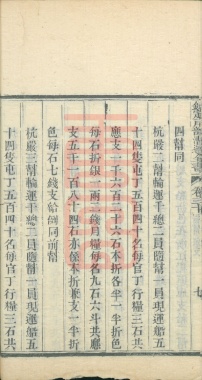 四幫同
杭嚴二幫輪運千總二員隨幫一員現運船五
十四隻屯丁五百四十名每官丁行糧三石共
應支一千六百二十六石本折各半一半折色
每石折銀一兩二錢月糧每名九石六斗共應
支五千一百八十四石亦係本折廳支一半折
色每石七錢支給例同前幫
杭嚴三幫輪運千總二員隨幫一員現運船五
十四隻屯丁五百四十名每官丁行糧三石共